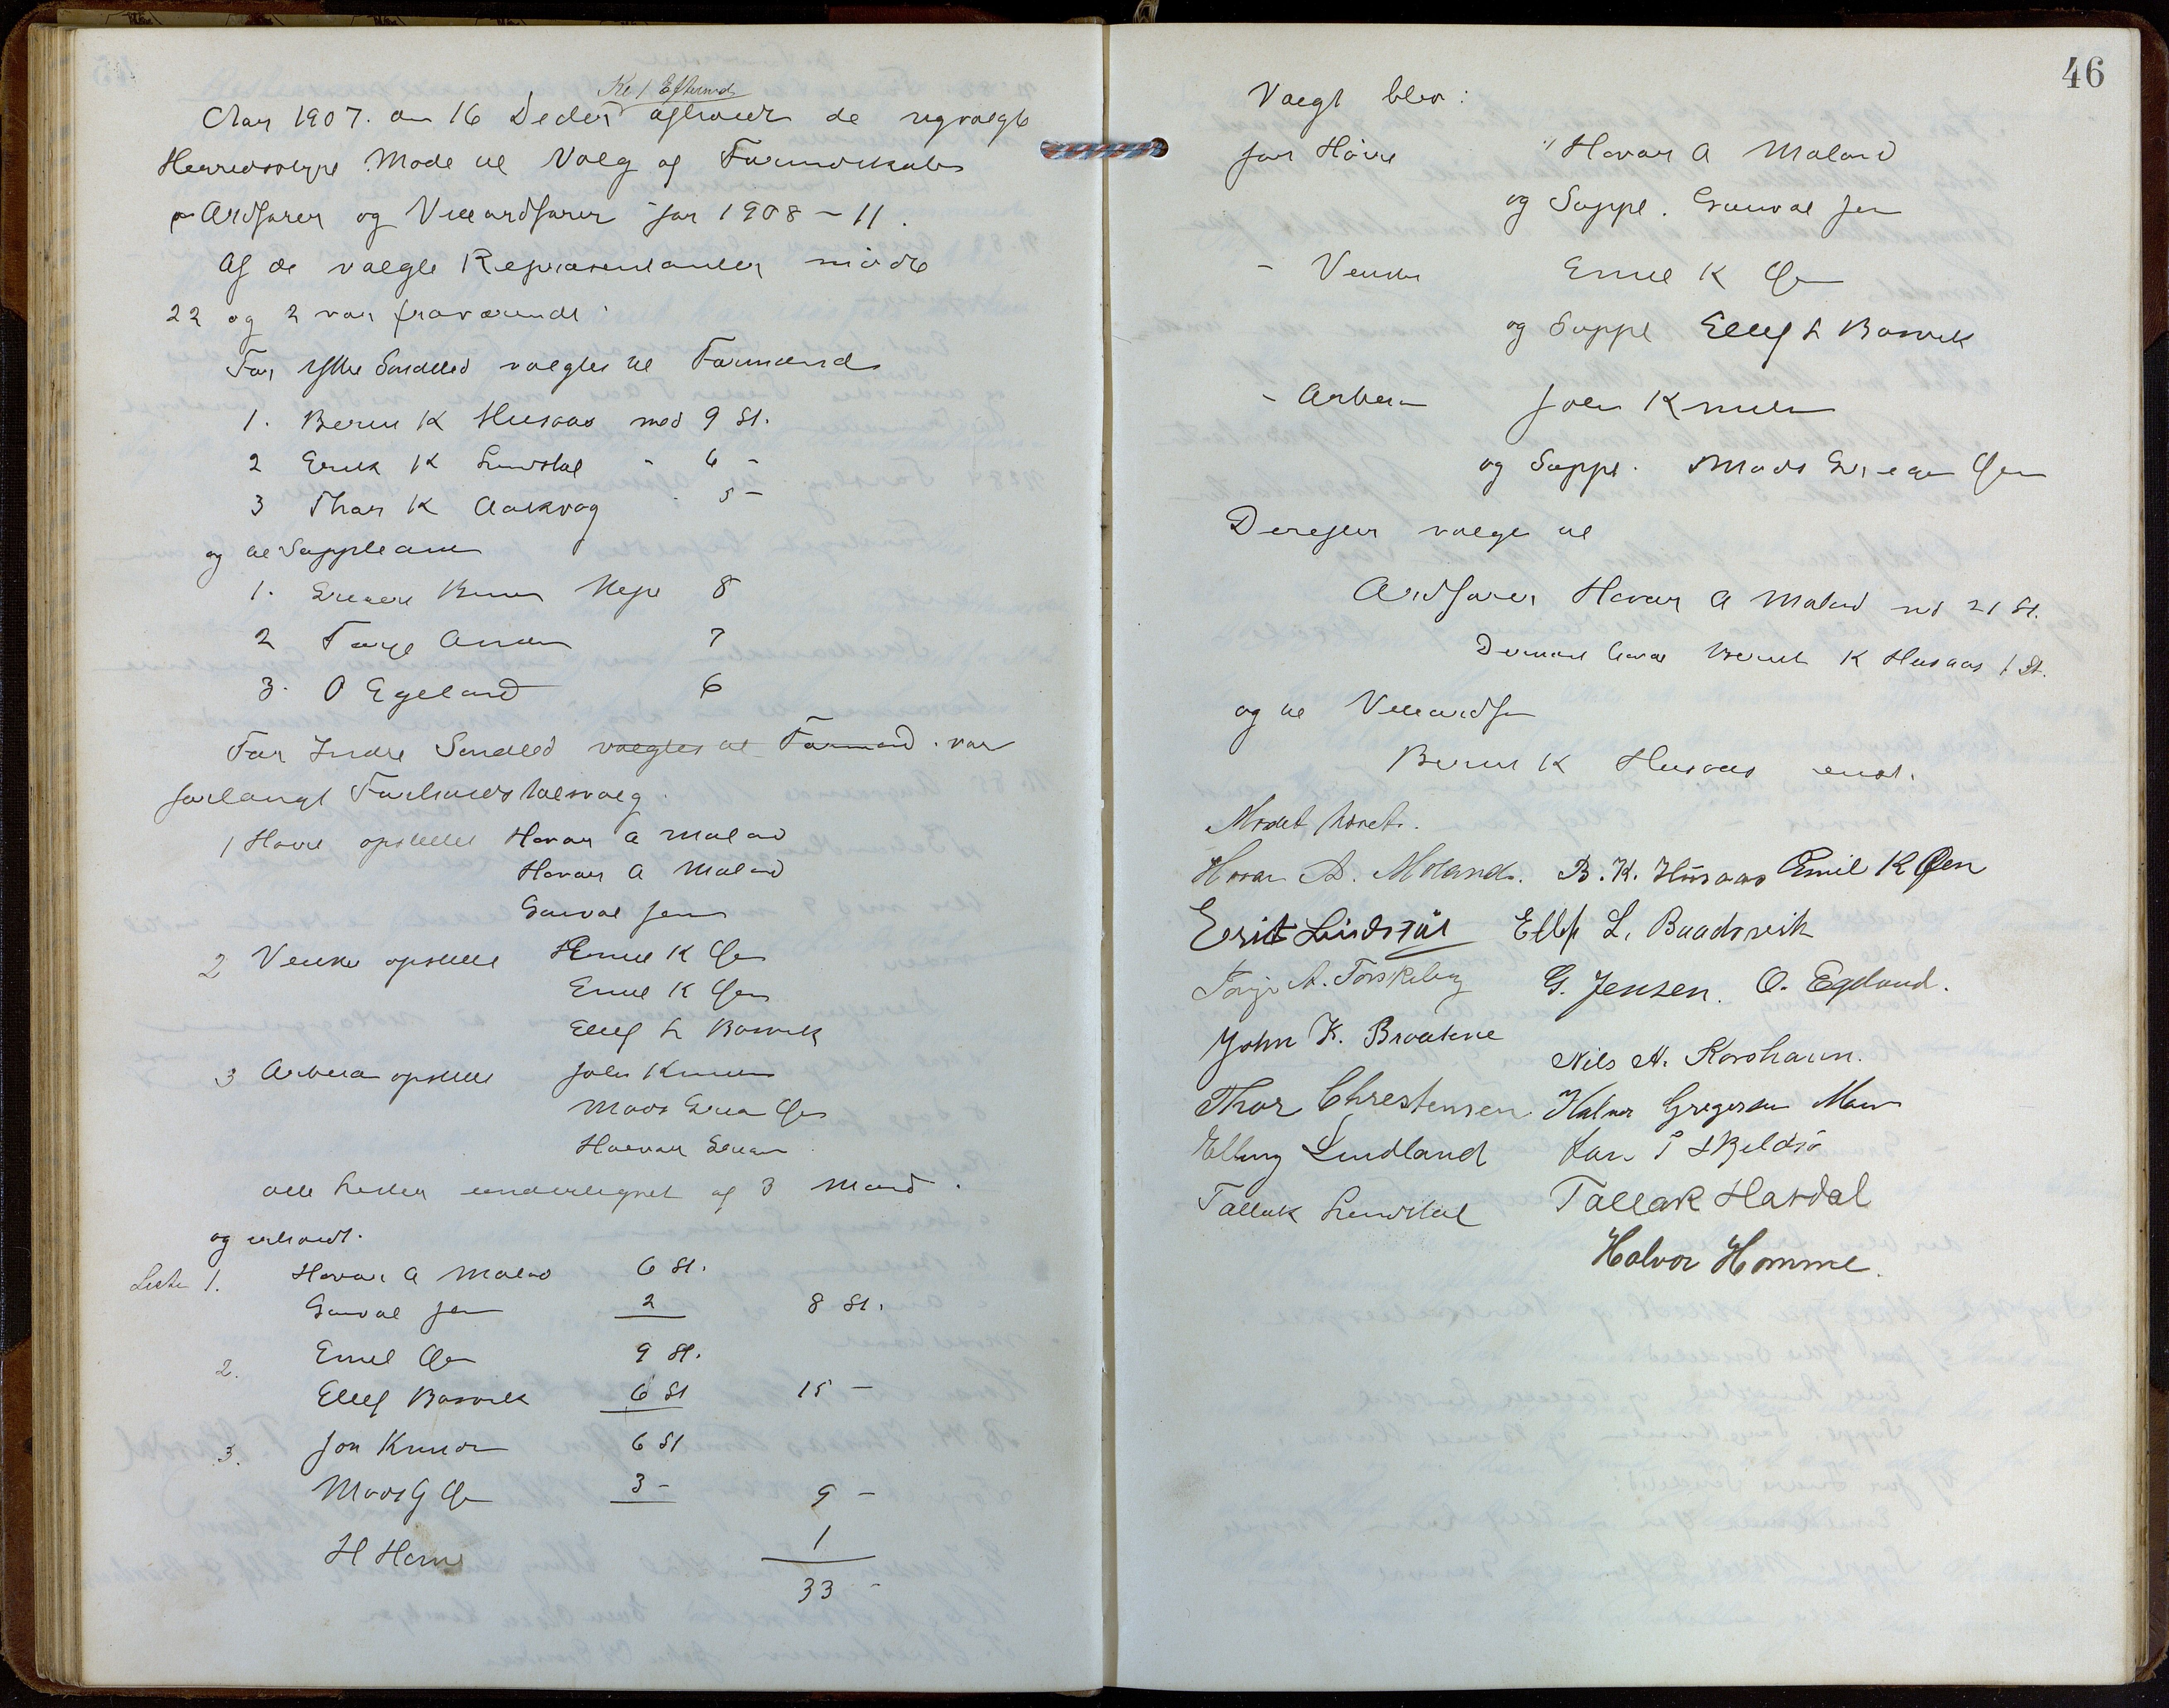 Kl 1 Eftermd
Aar 1907. den 16 Decbr afholdt de nyvalgte
Herredsstyre Møde til Valg af Formandskab
Ordfører og Viceordfører for 1908-11.
Af de valgte Repræsentanter mødte
22 og 2 var fraværende
For Ytre Søndeled valgtes til Formænd
1. Bernt K Husaas med 9 St.
2 Erik K Lindstøl - 6 -
3 Thor K Aakvag - 5 -
og til Suppleant
1. 8
2 Terje 7
3. O Egeland 6
For Indre Søndeled valgtes til Formænd. var
forlangt Forholdstalsvalg.
1 Høire opstillet Havor A Moland
Havor A Moland
Gunval Jen
2 Venstre opstillet Emil K Øen
Emil K Øen
Ellef L Bosvik
3 Arbeider opstillet John Knuds
Mads Øen
Halvor
alle Lister underlegnet af 3 Mand.
og erholdt.
Liste 1. Havor A Moland 6 St.
Gunval Jen 2 8 St.
2. Emil Øen 9 St.
Ellef Bosvik 6 St 15 -
3. Jon Knuds 6 St
Mads G Øen 3 - 9 -
H Hom 1
33 -
46
Valgt blev:
for Høire Havor A Moland
og Suppl. Gunval Jen
- Venstre Emil K Øen
og Suppl Ellef L Bosvik
- Arbei John Knuds
og Suppl. Mads Øen
Derefter valgt til
Ordfører Havor A Moland med 21 St.
Bernt K Husaas 1 St.
og til Viceordf
Bernt K Husaas enst.
Mødet hævet.
Hovar A. Moland. B. K. Husaas Emil K Øen
Erik Lindstøl Ellef L. Baadsvik
Terje A. Torskeberg G. Jensen. O. Egeland.
John K. Braatene
Nils A. Korshavn.
Thor Chrestensen Halvor Gregersen Moen
Elling Lindland Jan T Skjeldsø
Tallak Lindstøl Tallak Hasdal
Halvor Homme.